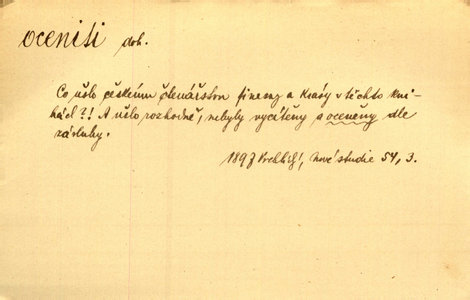 oceniti dok.
Co ušlo českému čtenářstvu finesy a krásy v těchto kni-
hách?! A ušlo rozhodně, nebyly vycítěny a oceněny dle
zásluhy.
1897 Vrchlický, Nové studie 54, 3.